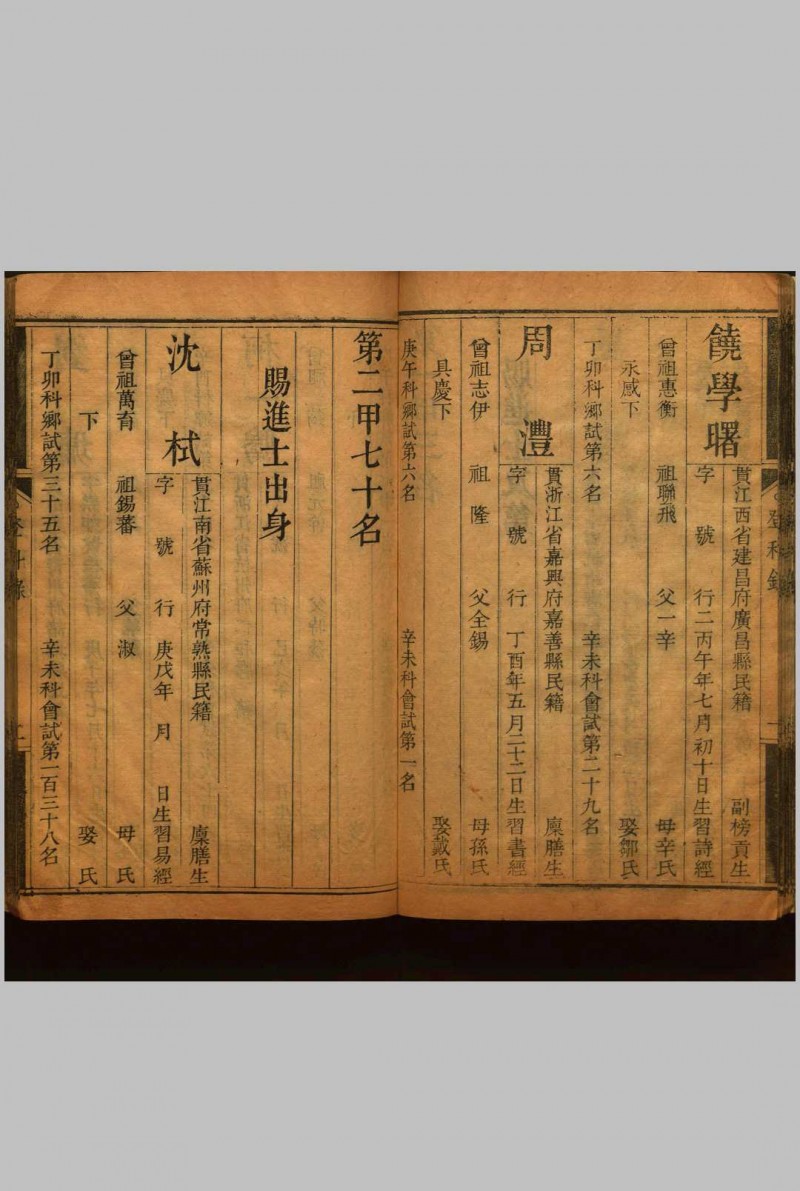 饒學曙
貫江西省建昌府廣昌縣民籍 副榜貢生
字 號 行二丙午年七月初十日生習詩經
曾祖惠衡 祖聯飛 父一辛 母辛氏
永感下 娶鄒氏
丁卯科鄉試第六名 辛未科會試第二十九名
周灃
貫浙江省嘉興府嘉善縣民籍 廩膳生
字 號 行 丁酉年五月二十二日生習書經
曾祖志伊 祖隆 父全錫 母孫氏
具慶下 娶戴氏
庚午科鄉試第六名 辛未科會試第一名
第二甲七十名
賜進士出身
沈栻
貫江南省蘇州府常熟縣民籍 廩膳生
字 號 行 庚戊年 月 日生習易經
曾祖萬育 祖錫蕃 父淑 母 氏
下 娶 氏
丁卯科鄉試第三十五名 辛未科會試第一百三十八名
登科錄